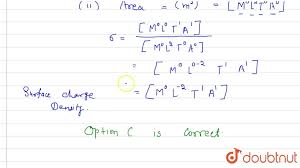 (ii) Area = (m²) = [M⁰L²T⁰A⁰]
σ = [M⁰L⁰T¹A¹]
[M⁰L²T⁰A⁰]
= [M⁰ L⁰⁻² T¹ A¹]
Surface charge Density. = [M⁰L⁻²T¹A¹]
Option C is correct
doubtnut